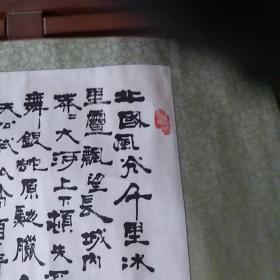 北國風光千里冰
里雪飄望長城內
莽〻大河上下頓失
舞銀蛇原馳臘
天公試比高